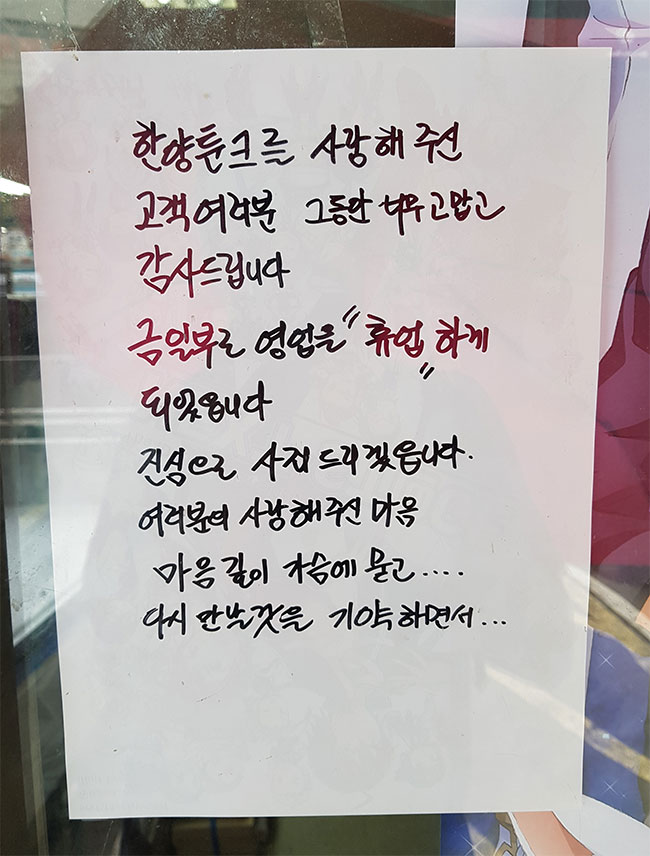 한양툰크를 사랑해 주신
고객여러분 그동안 너무 고맙고
감사드립니다
금일부로 영업을 "휴업"하게
되었읍니다
진심으로 사죄 드리겠읍니다.
여러분의 사랑해주신 마음
마음깊이 가슴에 묻고....
다시 만날것을 기약하면서...